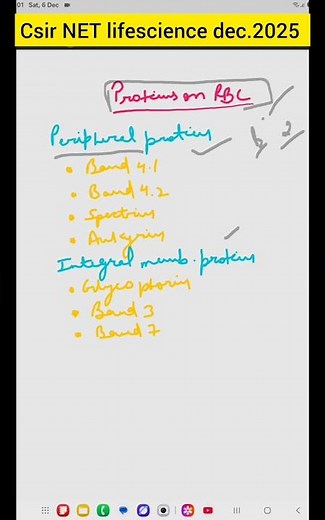 01 Sat, 6 Dec
Csir NET lifescience dec.2025
Proteins on RBC
Peripheral proteins
• Band 4.1
• Band 4.2
• Spectrins
• Ankyrins
Integral memb. proteins
• Glycophorins
• Band 3
• Band 7